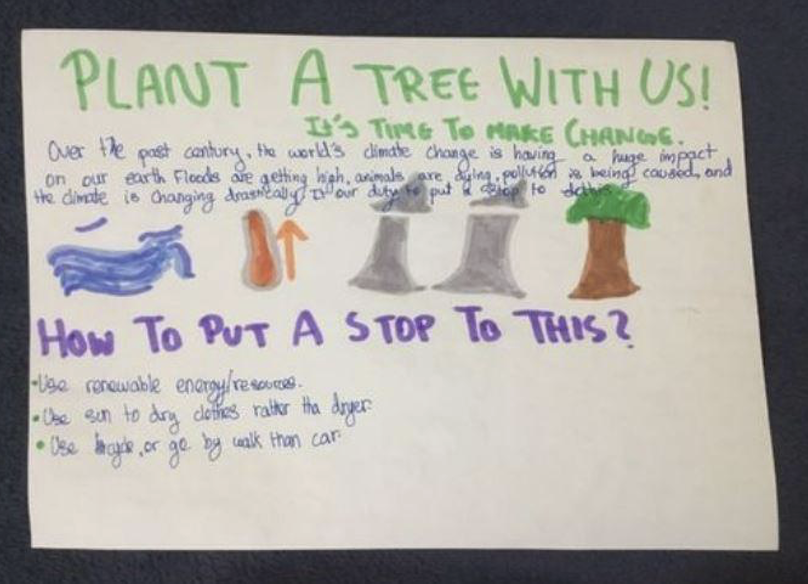 PLANT A TREE WITH US!
IT'S TIME TO MAKE CHANGE.
Over the past century, the world's climate change is having a huge impact
on our earth Floods are getting high, animals are dying, pollution is being caused, and
the climate is changing drastically. It our duty to put a stop to
HOW TO PUT A STOP TO THIS?
•Use renewable energy/resources.
•Use sun to dry clothes rather tha dryer
•Use bicycle, or go by walk than car